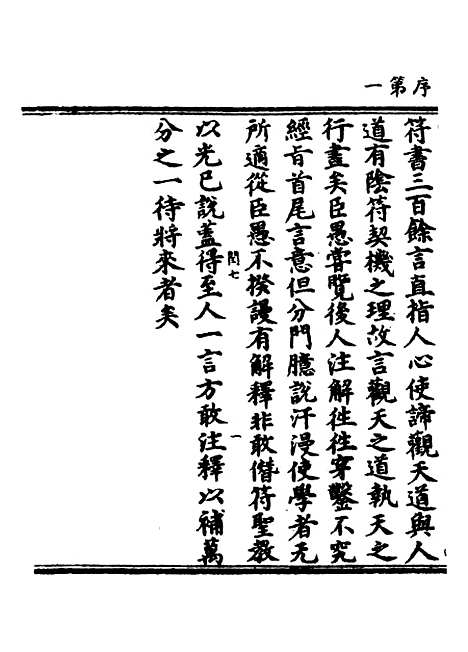 序第一
符書三百餘言直指人心使諦觀天道與人
道有陰符契機之理故言觀天之道執天之
行盡矣臣愚嘗覽後人注解徃徃穿鑿不究
經旨首尾言意但分門臆說汗漫使學者无
所適從臣愚不揆謾有解釋非敢僭符聖教
閏七
一
以光已說蓋得至人一言方敢注釋以補萬
分之一待將來者矣